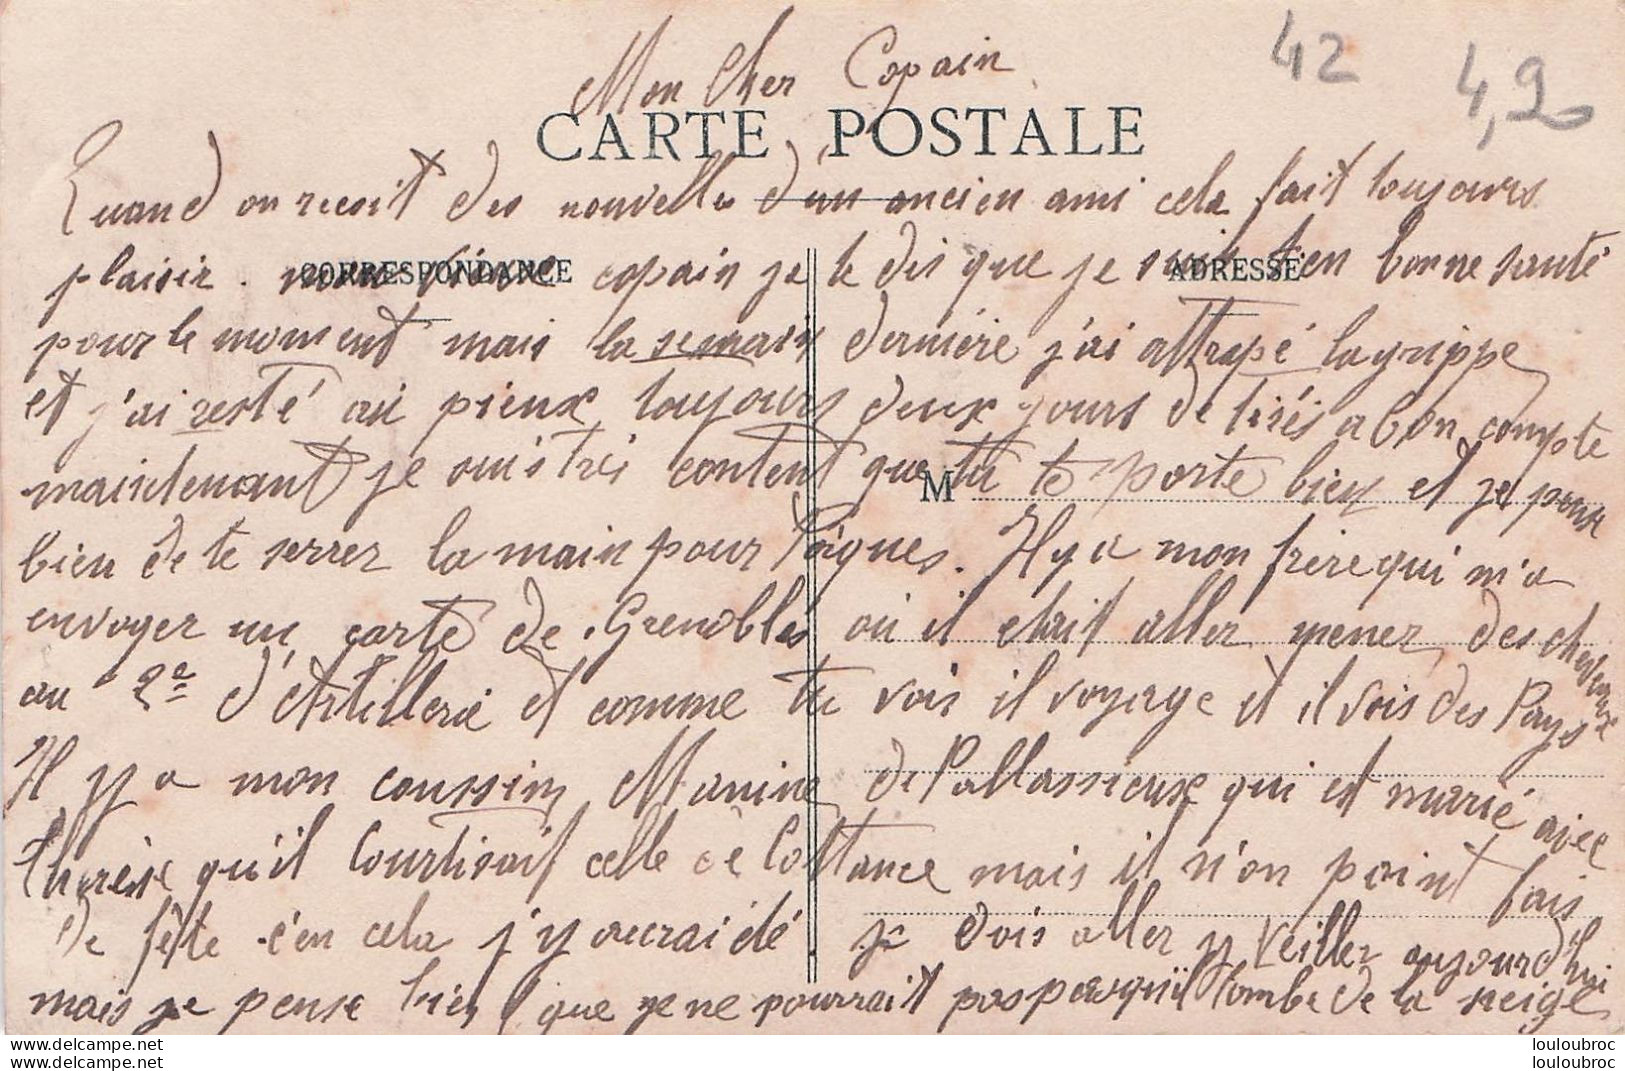 Mon Cher Copain
42
4,20
CARTE POSTALE
Quand on recoit des nouvelles d'un ancien ami cela fait toujours
CORRESPONDANCE
ADRESSE
plaisir. mon copain je te dis que je suis bien bonne santé
pour le moment mais la semain dernière j'ai attrapé la grippe
et j'ai resté au pieux toujours deux jours de tirés a bon compte
M
maintenant je suis très content que tu te porte bien et je pense
bien de te serrer la main pour Pâques. Il y a mon frère qui m'a
envoyer un carte de Grenobles où il était aller mener des chevaux
au 2e d'Artillerie et comme tu vois il voyage et il vois des Pays
Il y a mon coussin Manine de Pallassieux qui est marié avec
thérèse qu'il Courtisait celle de Costance mais il n'on point fais
de fête c'en cela j'y aurai été. je dois aller y veiller aujourd'hui
mais je pense bien que je ne pourrait pas parsqu'il tombe de la neige
louloubroc
louloubroc